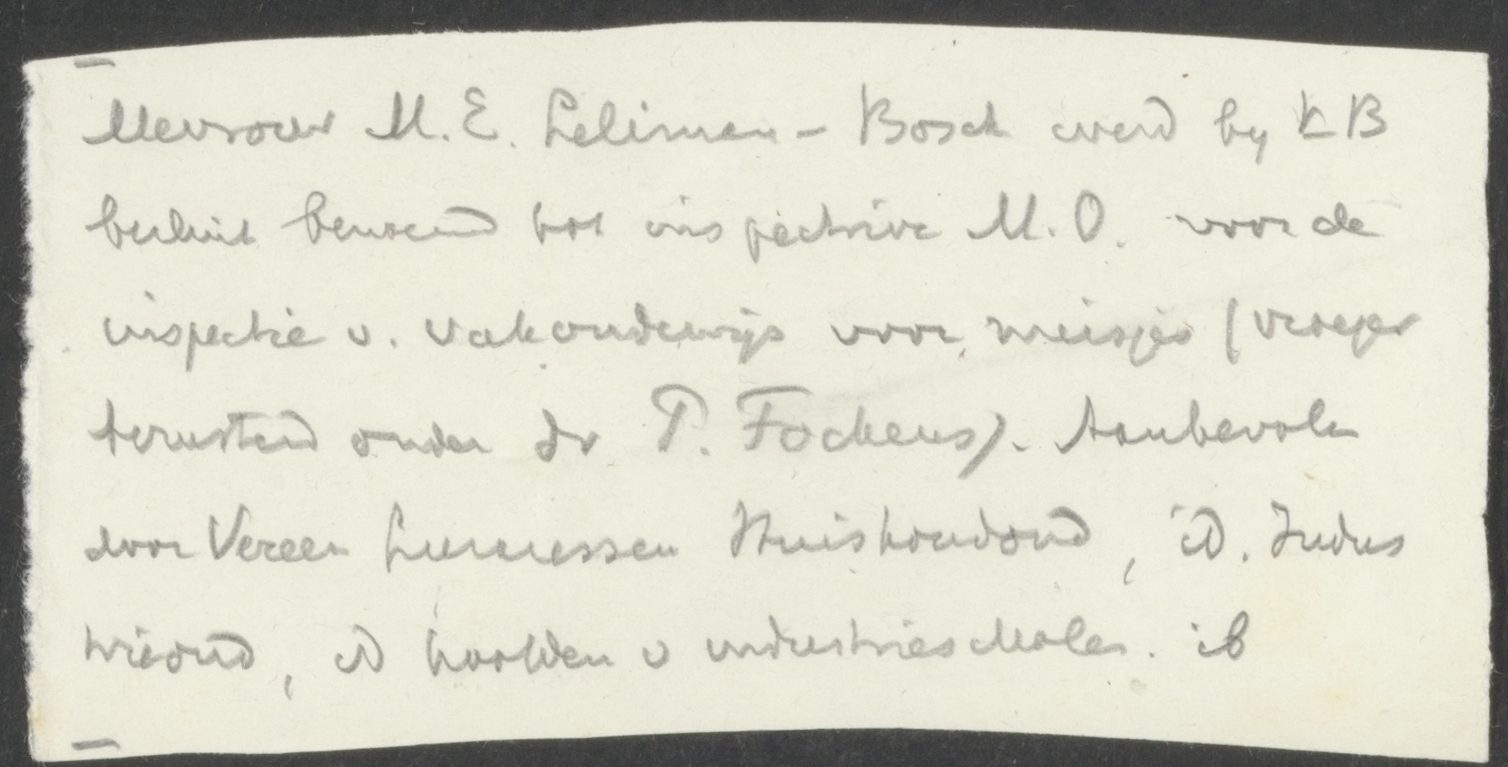 Mevrouw M.E. Leliman-Bosch werd by KB
besluit benoemd tot inspectrice M.O. voor de
inspectie v. vakonderwijs voor meisjes (vroeger
berustend onder dr P. Fockens). Aanbevolen
door Vereen Leeraressen Huishoudond, id. Indus
trieond, id hoofden v industriescholen. ib